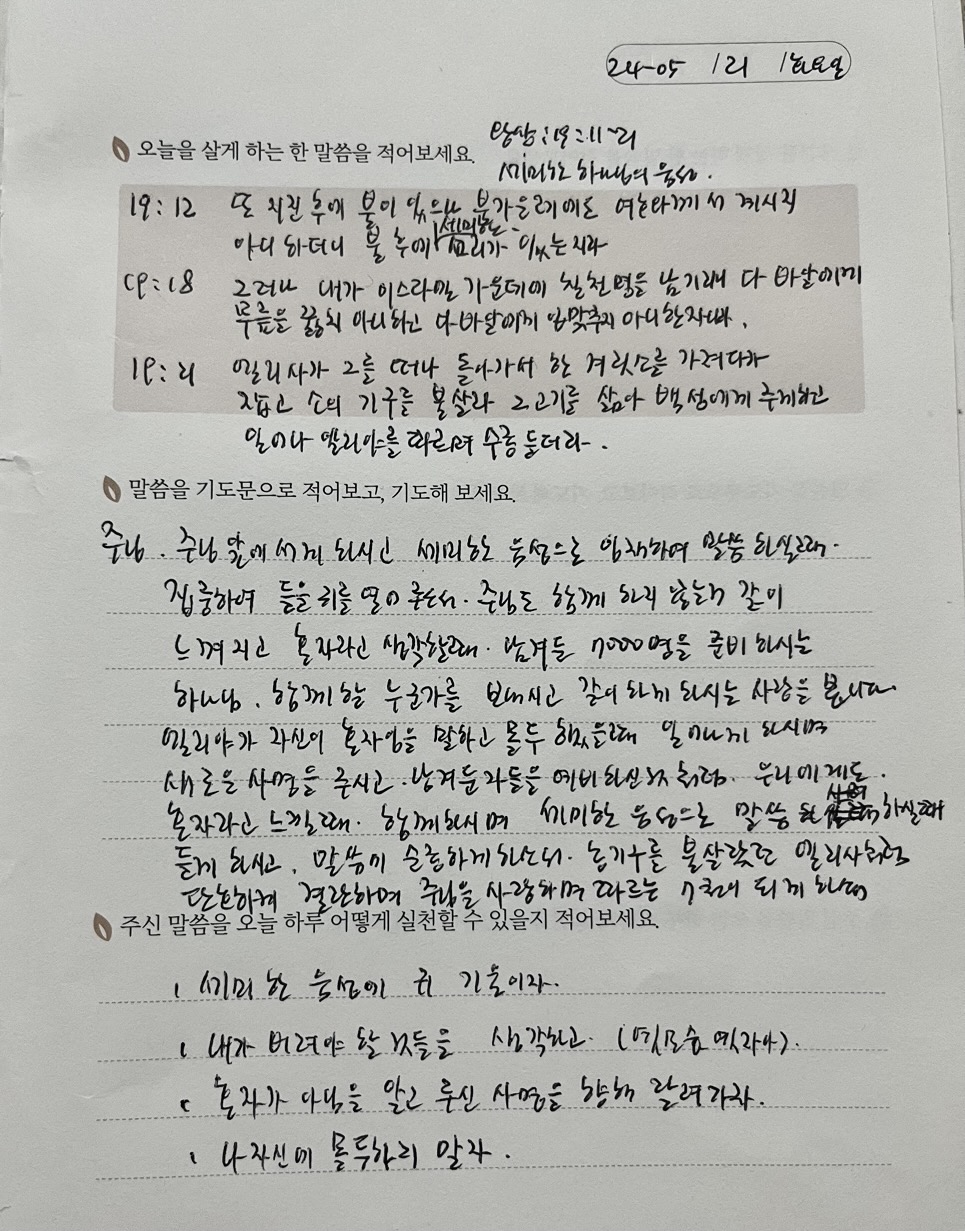 24-05 / 21 / 화요일
왕상:19:11~21
오늘을 살게 하는 한 말씀을 적어보세요.
세미한 하나님의 음성.
19:12 또 지진 후에 불이 있으나 불가운데에도 여호와께서 계시지
아니하더니 불 후에 세미한 소리가 있는지라
19:18 그러나 내가 이스라엘 가운데에 칠천명을 남기리니 다 바알에게
무릎을 꿇지 아니하고 다 바알에게 입맞추지 아니한자니라.
19:21 엘리사가 그를 떠나 돌아가서 한 겨릿소를 가져다가
잡고 소의 기구를 불살라 그고기를 삶아 백성에게 주게하고
일어나 엘리야를 따르며 수종 들더라.
말씀을 기도문으로 적어보고, 기도해 보세요.
주님. 주님 앞에 서게 하시고 세미한 음성으로 임재하여 말씀 하실때.
집중하여 들을 귀를 열어 주소서. 주님도 함께 하지 않는것 같이
느껴지고 혼자라고 생각할때. 남겨둔 7000명을 준비하시는
하나님. 함께할 누군가를 보내시고 같이하게 하시는 사랑을 봅니다.
엘리야가 자신이 혼자임을 말하고 몰두 했을때 일어나게 하시며
새로운 사명을 주시고. 남겨둔자들을 예비하신것처럼. 우리에게도.
혼자라고 느낄때. 함께하시며 세미한 음성으로 말씀 하실때
듣게 하시고. 말씀에 순종하게하소서. 농기구를 불살랐던 엘리사처럼
단호하게 결단하며 주님을 사랑하며 따르는 자가 되게 하소서
주신 말씀을 오늘 하루 어떻게 실천할 수 있을지 적어보세요.
1 세미한 음성에 귀 기울이자.
1 내가 버려야 할 것들을 생각하고. (옛모습 옛자아).
1 혼자가 아님을 알고 주신 사명을 향해 달려가자.
1 나자신에 몰두하지 말자.